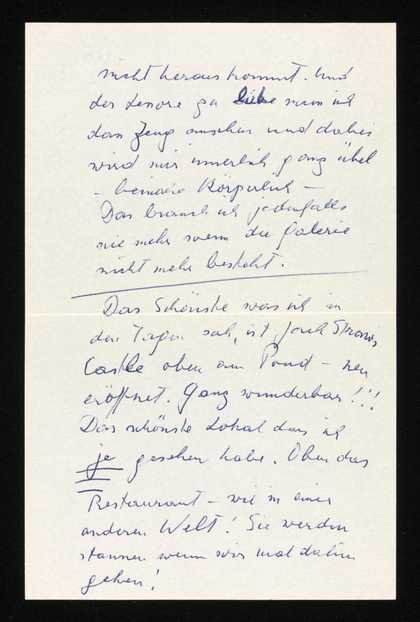 nicht heraus kommt. Und
der Lenore zu liebe muss ich
das Zeug ansehen und dabei
wird mir innerlich ganz übel
– beinahe körperlich –
Das brauch ich jedenfalls
nie mehr wenn die Galerie
nicht mehr besteht.
Das Schönste was ich in
den Tagen sah, ist Jack Straws
Castle oben am Pond – neu
eröffnet. Ganz wunderbar!!!
Das schönste Lokal das ich
je gesehen habe. Oben das
Restaurant – wie in einer
anderen Welt! Sie werden
staunen wenn wir mal dahin
gehen!